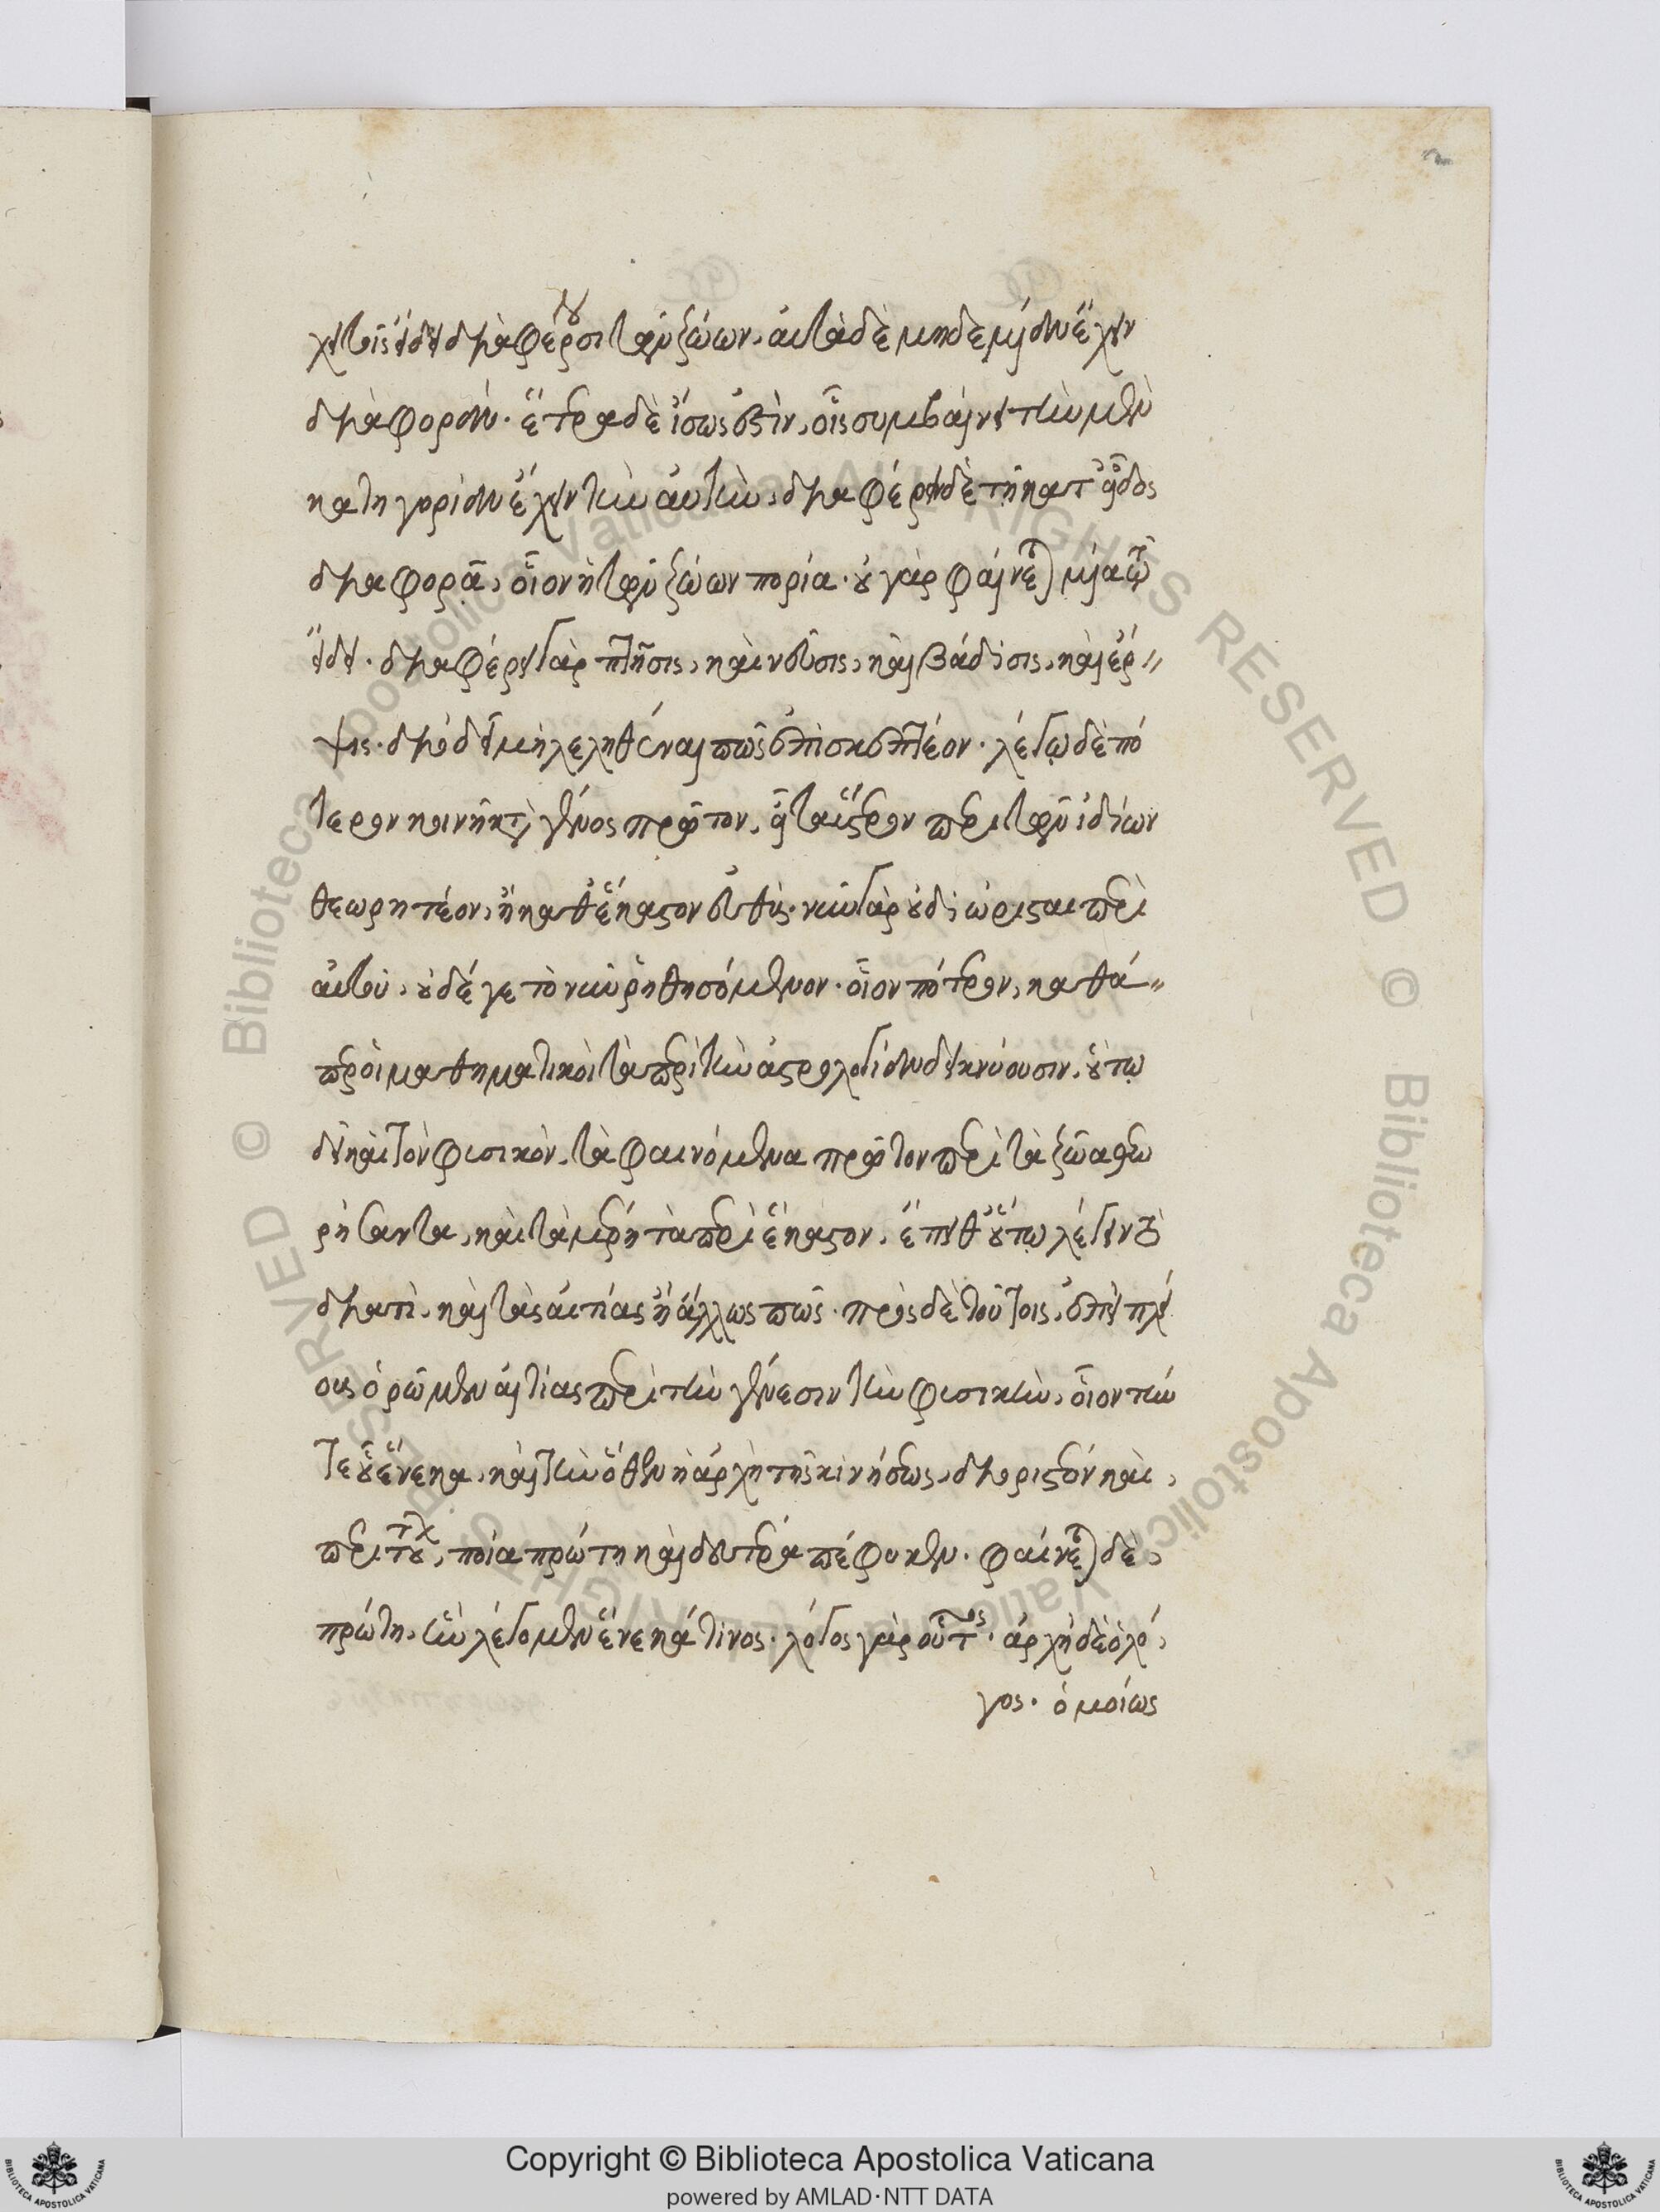 2
χει τοῖς εἴδει διαφέρουσι τῶν ζώων, αὐτὰ δὲ μηδεμίαν ἔχειν
διαφοράν. ἕτερα δὲ ἴσως ἐστὶν, οἷς συμβαίνει τὴν μὲν
κατηγορίαν ἔχειν τὴν αὐτὴν, διαφέρειν δὲ τῇ κατ' εἶδος
διαφορᾷ, οἷον ἡ τῶν ζώων πορία. οὐ γὰρ φαίνεται μία τῷ
εἴδει. διαφέρει γὰρ πτῆσις, καὶ νεῦσις, καὶ βάδισις, καὶ ἕρ〃
ψις. διὸ δεῖ μὴ λεληθέναι πῶς ἐπισκεπτέον. λέγω δὲ πό
τερον κοινῇ κατὰ γένος πρῶτον, εἶτα ὕστερον περὶ τῶν ἰδίων
θεωρητέον, ἢ καθ' ἕκαστον εὐθύς. νῦν γὰρ οὐ διώρισται περὶ
αὐτοῦ, οὐδέ γε τὸ νῦν ῥηθησόμενον. οἷον πότερον, καθά〃
περ οἱ μαθηματικοὶ τὰ περὶ τὴν ἀστρολογίαν δεικνύουσιν, οὕτω
δεῖ καὶ τὸν φυσικὸν, τὰ φαινόμενα πρῶτον περὶ τὰ ζῶα θεω
ρήσαντα, καὶ τὰ μέρη τὰ περὶ ἕκαστον, ἔπειθ' οὕτω λέγειν τὸ
διατὶ, καὶ τὰς αἰτίας ἢ ἄλλως πῶς. πρὸς δὲ τούτοις, ἐπεὶ πλεί
ους ὁρῶμεν αἰτίας περὶ τὴν γένεσιν τὴν φυσικὴν, οἷον τήν
τε οὗ ἕνεκα, καὶ τὴν ὅθεν ἡ ἀρχὴ τῆς κινήσεως, διοριστέον καὶ,
περὶ τούτων, ποία πρώτη καὶ δευτέρα πέφυκεν. φαίνεται δὲ,
πρώτη, ἣν λέγομεν ἕνεκά τινος. λόγος γὰρ οὗτος. ἀρχὴ δὲ ὁ λό,
γος. ὁμοίως
Copyright © Biblioteca Apostolica Vaticana
powered by AMLAD·NTT DATA